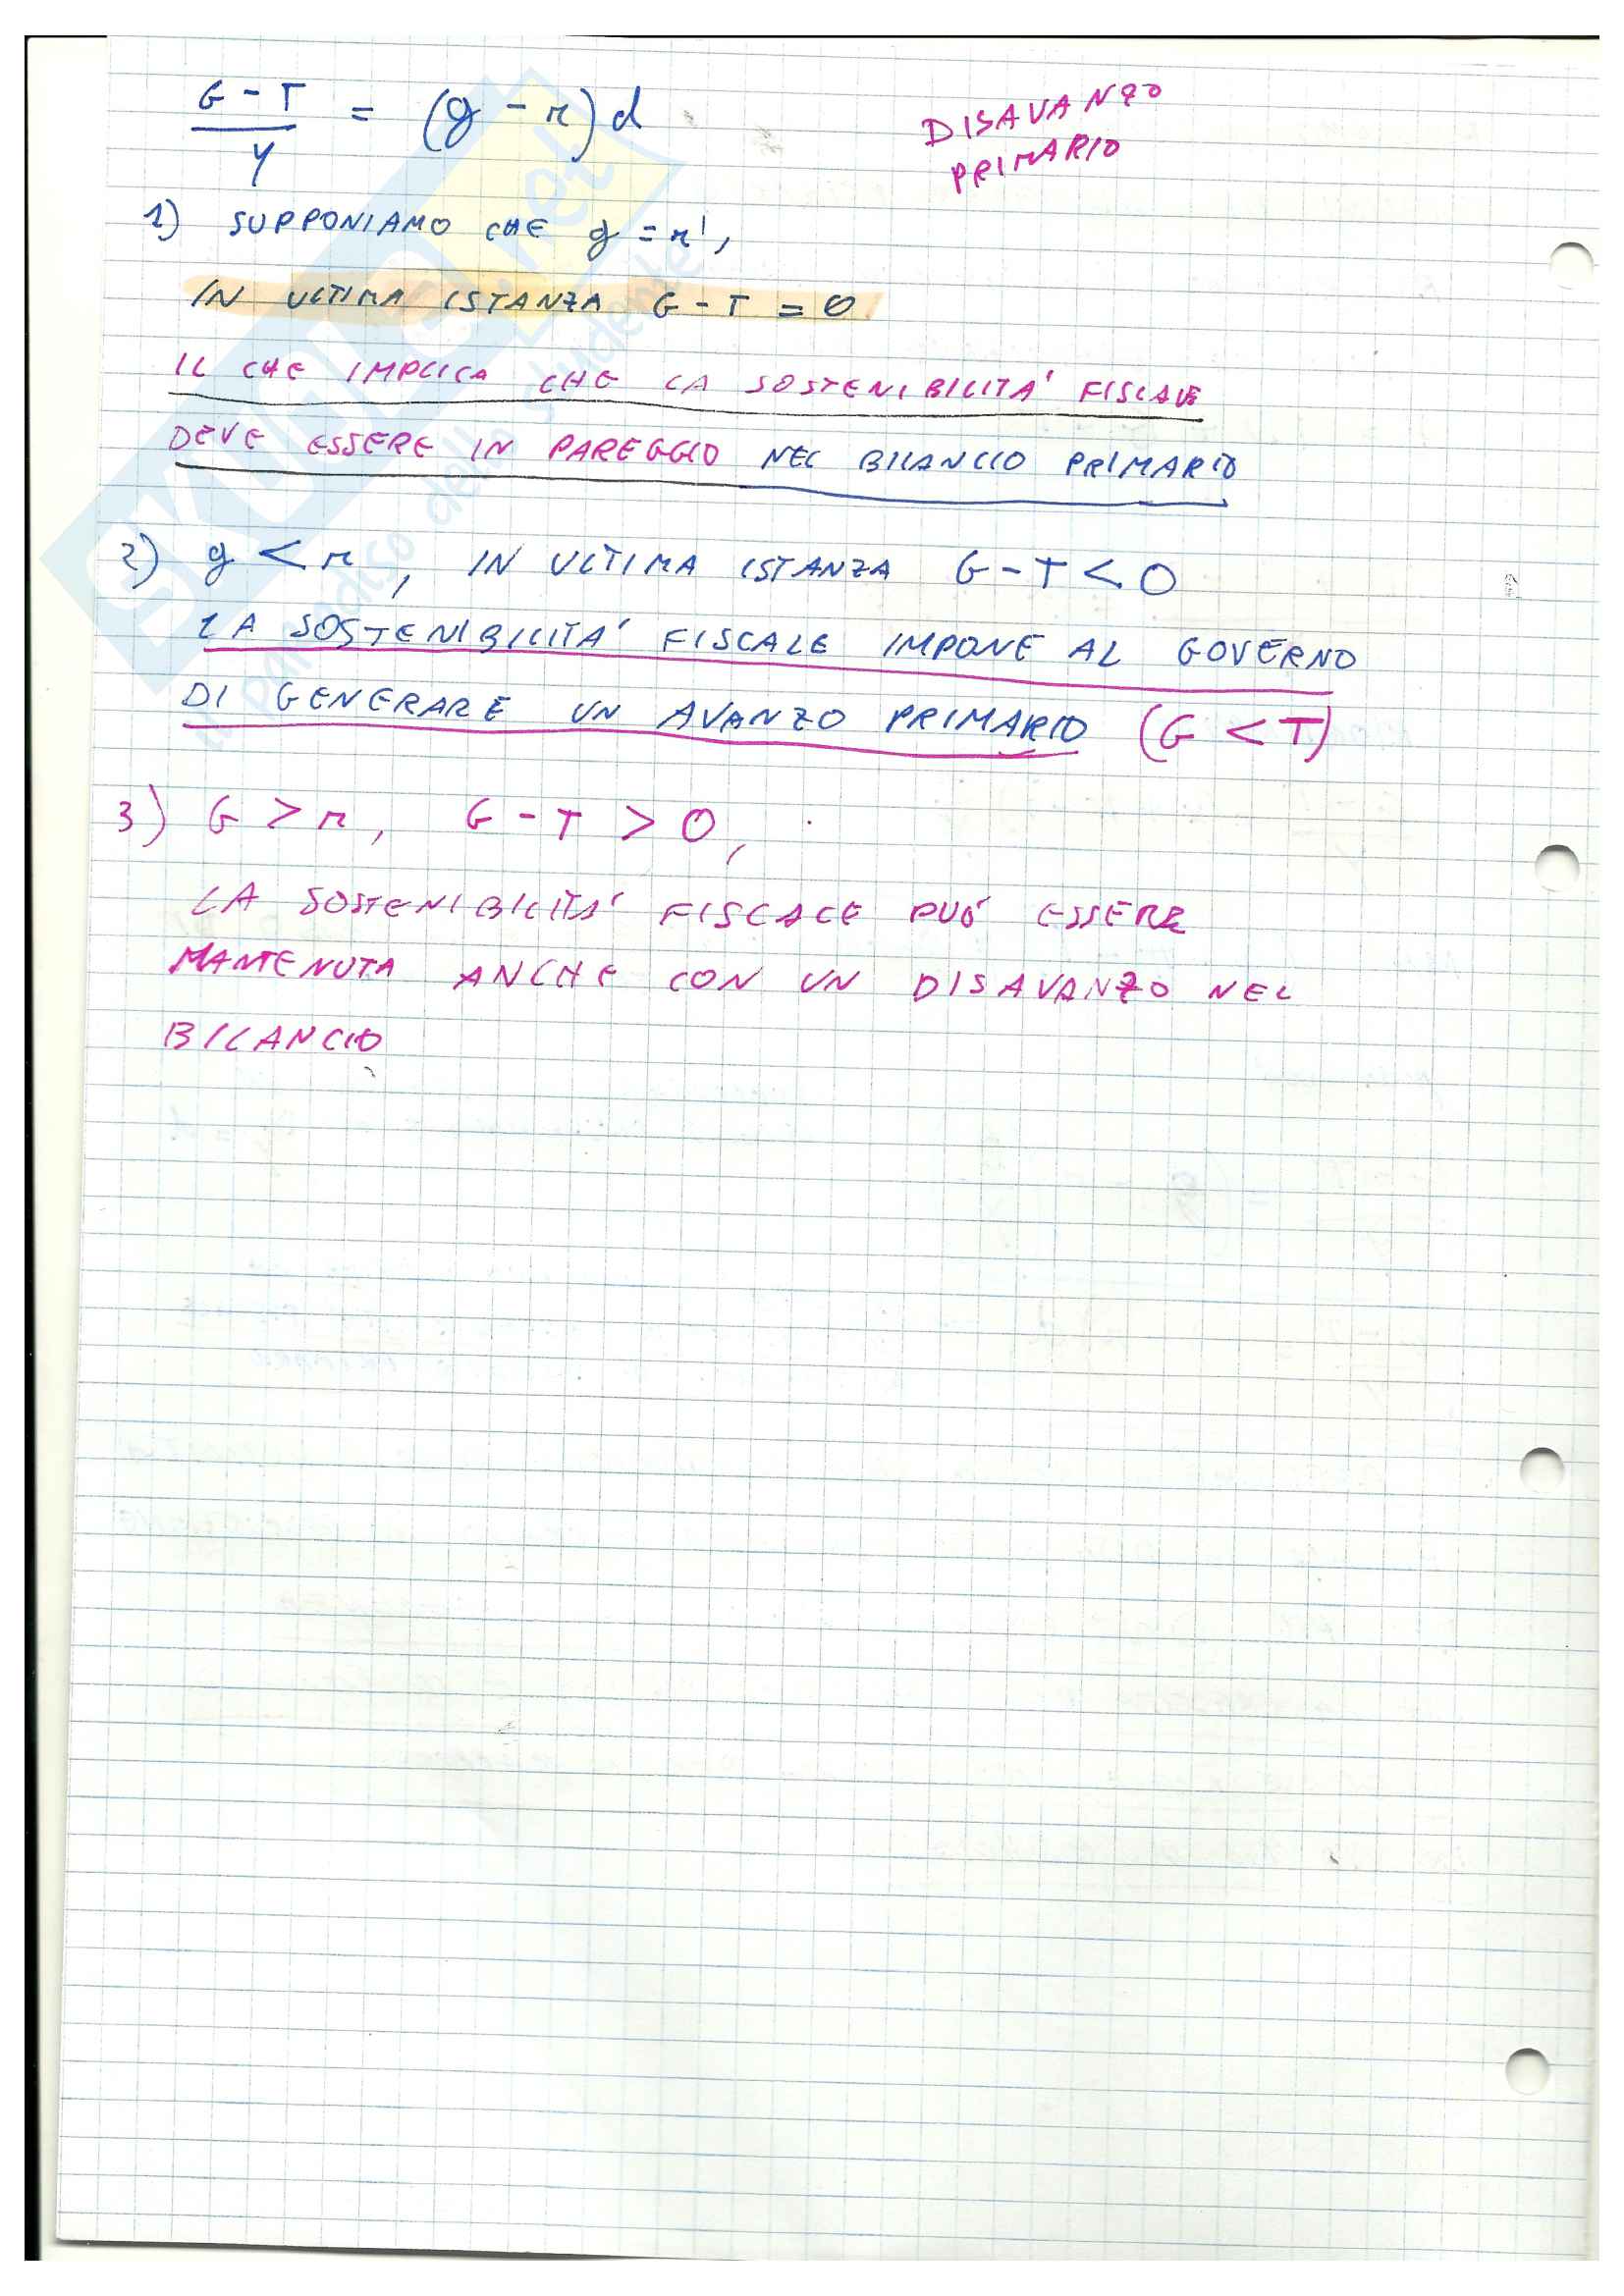 G - T / Y = (g - r) d
DISAVANZO
PRIMARIO
1) SUPPONIAMO CHE g = r',
IN ULTIMA ISTANZA G - T = 0
IL CHE IMPLICA CHE LA SOSTENIBILITA' FISCALE
DEVE ESSERE IN PAREGGIO NEL BILANCIO PRIMARIO
2) g < r, IN ULTIMA ISTANZA G - T < 0
LA SOSTENIBILITA' FISCALE IMPONE AL GOVERNO
DI GENERARE UN AVANZO PRIMARIO (G < T)
3) G > r, G - T > 0,
LA SOSTENIBILITA' FISCALE PUO' ESSERE
MANTENUTA ANCHE CON UN DISAVANZO NEL
BILANCIO
SKUOLA.net
il paradiso dello studente